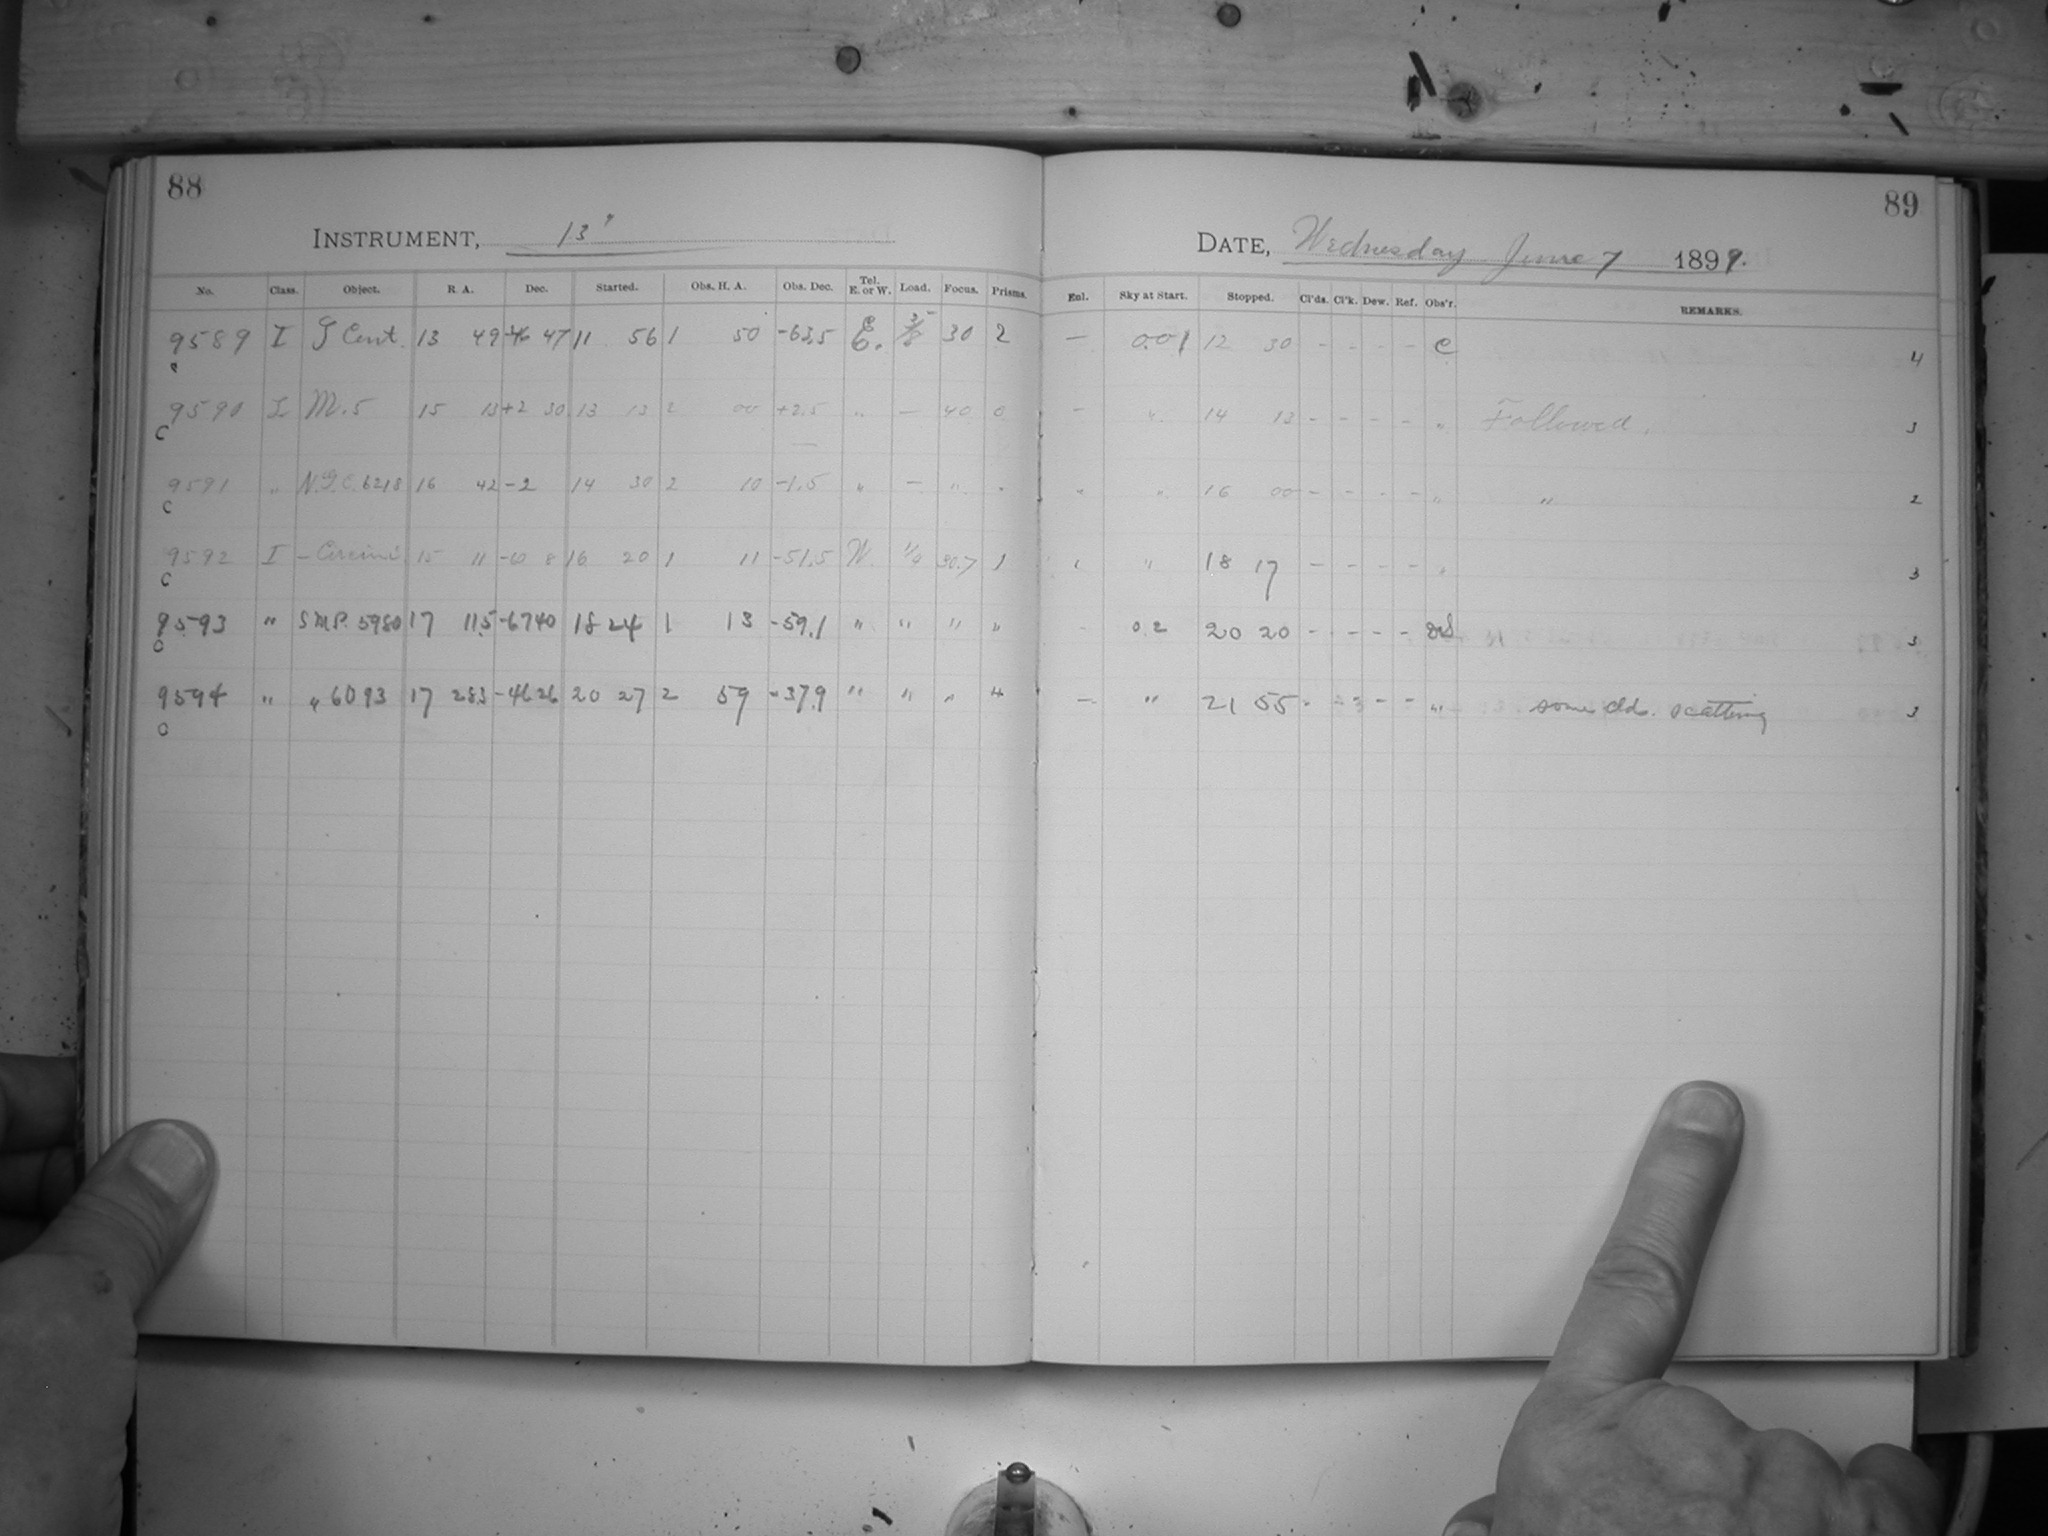 88
INSTRUMENT, 13"
No. Class. Object. R. A. Dec. Started. Obs. H. A. Obs. Dec. Tel. E. or W. Load. Focus. Prisms.
9589 I Cent. 13 49 -46 47 11 56 1 50 -63.5 E. 30 2
9590 I M. 5 15 13 +2 30 13 13 2 00 +2.5 " — 40 0
C
9591 " N.G.C. 6218 16 42 -2 14 30 2 10 -1.5 " — " "
C
9592 I - Circini 15 11 8 16 20 1 11 -51.5 W. 1/4 30.7 1
C
9593 " S.M.P. 5980 17 11.5 -67 40 18 24 1 13 -59.1 " " " "
C
9594 " " 6093 17 28.3 -46 26 20 27 2 59 -37.9 " " " "
C
89
DATE, Wednesday June 7 1899.
Enl. Sky at Start. Stopped. Cl'ds. Cl'k. Dew. Ref. Obs'r. REMARKS.
— 0.01 12 30 - - - - C 4
- " 14 13 - - - - " Followed. 3
" " 16 00 - - - - " " 2
" " 18 17 - - - - " 3
- 0.2 20 20 - - - - 3
— " 21 55 - - - - " some cld. scattering 3